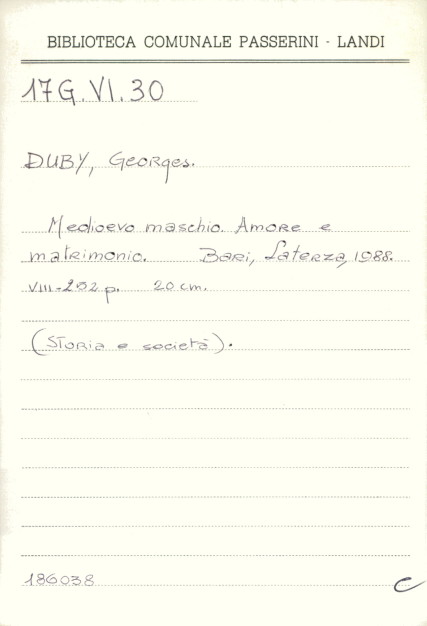 BIBLIOTECA COMUNALE PASSERINI - LANDI
17G.VI.30
DUBY, Georges.
Medioevo maschio. Amore e
matrimonio. Bari, Laterza, 1988.
VIII-252 p. 20 cm.
(Storia e società).
186038
C